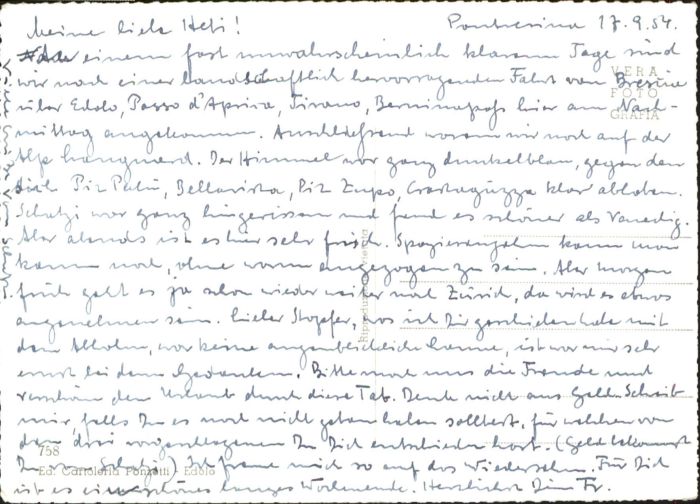 Meine liebe Heli! Pontresina 17.9.54.
einem fast unwahrscheinlich klaren Tage sind
wir nach einer landschaftlich hervorragenden Fahrt von Brescia
über Edolo, Passo d'Aprica, Tirano, Berninapass hier am Nach-
mittag angekommen. Anschließend waren wir noch auf der
Alp Languard. Der Himmel war ganz dunkelblau, gegen den
sich Piz Palü, Bellavista, Piz Zupo, Crastagüzza klar abhoben.
Schatzi war ganz hingerissen und fand es schöner als Venedig.
Aber abends ist es hier sehr frisch. Spazierengehen kann man
kaum noch, ohne warm angezogen zu sein. Aber morgen
früh geht es ja schon wieder weiter nach Zürich, da wird es etwas
angenehmer sein. Lieber was ich Dir geschrieben habe mit
dem war keine augenblickliche Laune, ist war mir sehr
ernst bei dem Gedanken. Bitte mach uns die Freude und
den Urlaub durch diese Tat. Denk nicht ans Geld. Schreib
mir, falls Du es noch nicht getan haben solltest, für welchen von
den drei vorgeschlagenen Du Dich entschieden hast. (Geld bekommst
Du von Schatzi) Ich freue mich so auf das Wiedersehn. Für Dich
ist es ein schönes langes Wochenende. Herzlichst Dein Fr.
VERA
FOTO
GRAFIA
758
Ed. Cartoleria Ponzatti - Edolo